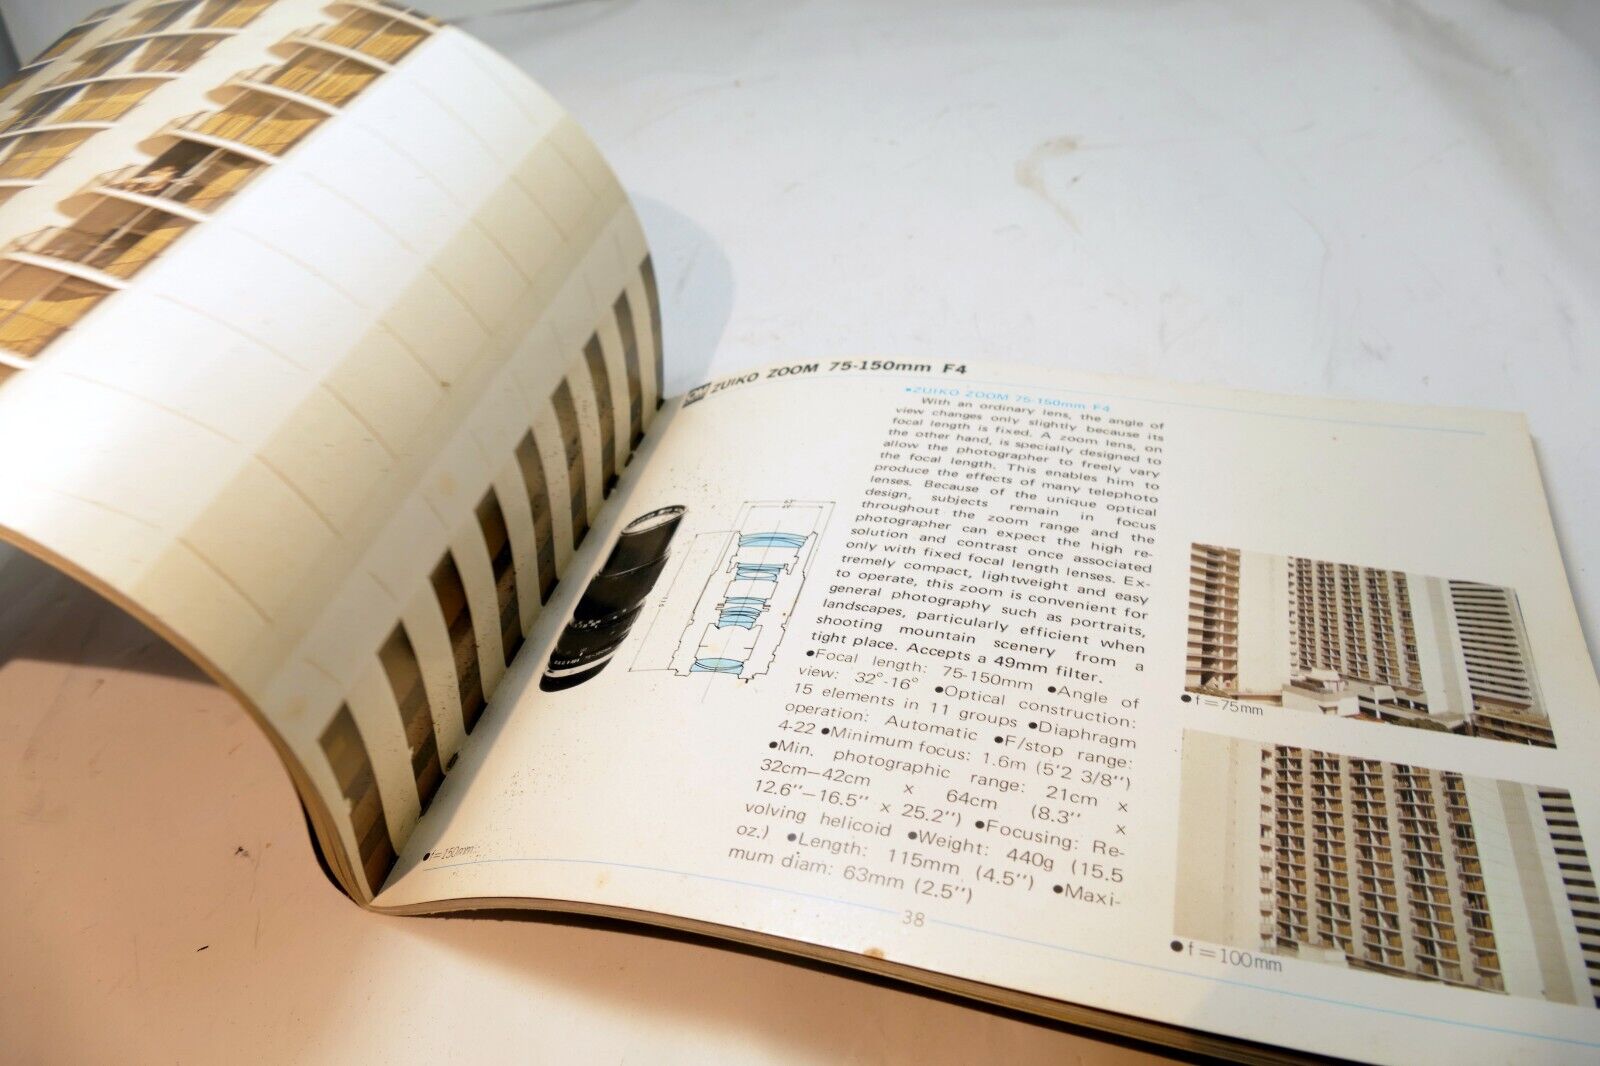 OM ZUIKO ZOOM 75-150mm F4
•ZUIKO ZOOM 75-150mm F4
With an ordinary lens, the angle of
view changes only slightly because its
focal length is fixed. A zoom lens, on
the other hand, is specially designed to
allow the photographer to freely vary
the focal length. This enables him to
produce the effects of many telephoto
lenses. Because of the unique optical
design, subjects remain in focus
throughout the zoom range and the
photographer can expect the high re-
solution and contrast once associated
only with fixed focal length lenses. Ex-
tremely compact, lightweight and easy
to operate, this zoom is convenient for
general photography such as portraits,
landscapes, particularly efficient when
shooting mountain scenery from a
tight place. Accepts a 49mm filter.
●Focal length: 75-150mm ●Angle of
view: 32°-16° ●Optical construction:
15 elements in 11 groups ●Diaphragm
operation: Automatic ●F/stop range:
4-22 ●Minimum focus: 1.6m (5'2 3/8")
●Min. photographic range: 21cm ×
32cm–42cm × 64cm (8.3" ×
12.6"–16.5" × 25.2") ●Focusing: Re-
volving helicoid ●Weight: 440g (15.5
oz.) ●Length: 115mm (4.5") ●Maxi-
mum diam: 63mm (2.5")
●f=75mm
●f=100mm
●f=150mm
38